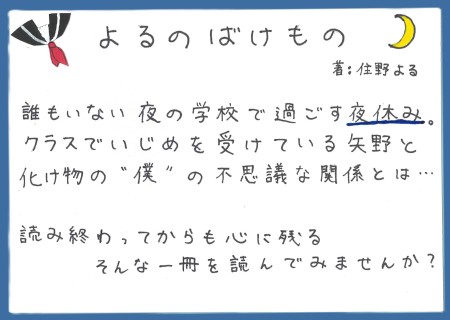 よるのばけもの
著：住野よる
誰もいない夜の学校で過ごす夜休み。
クラスでいじめを受けている矢野と
化け物の"僕"の不思議な関係とは…
読み終わってからも心に残る
そんな一冊を読んでみませんか？